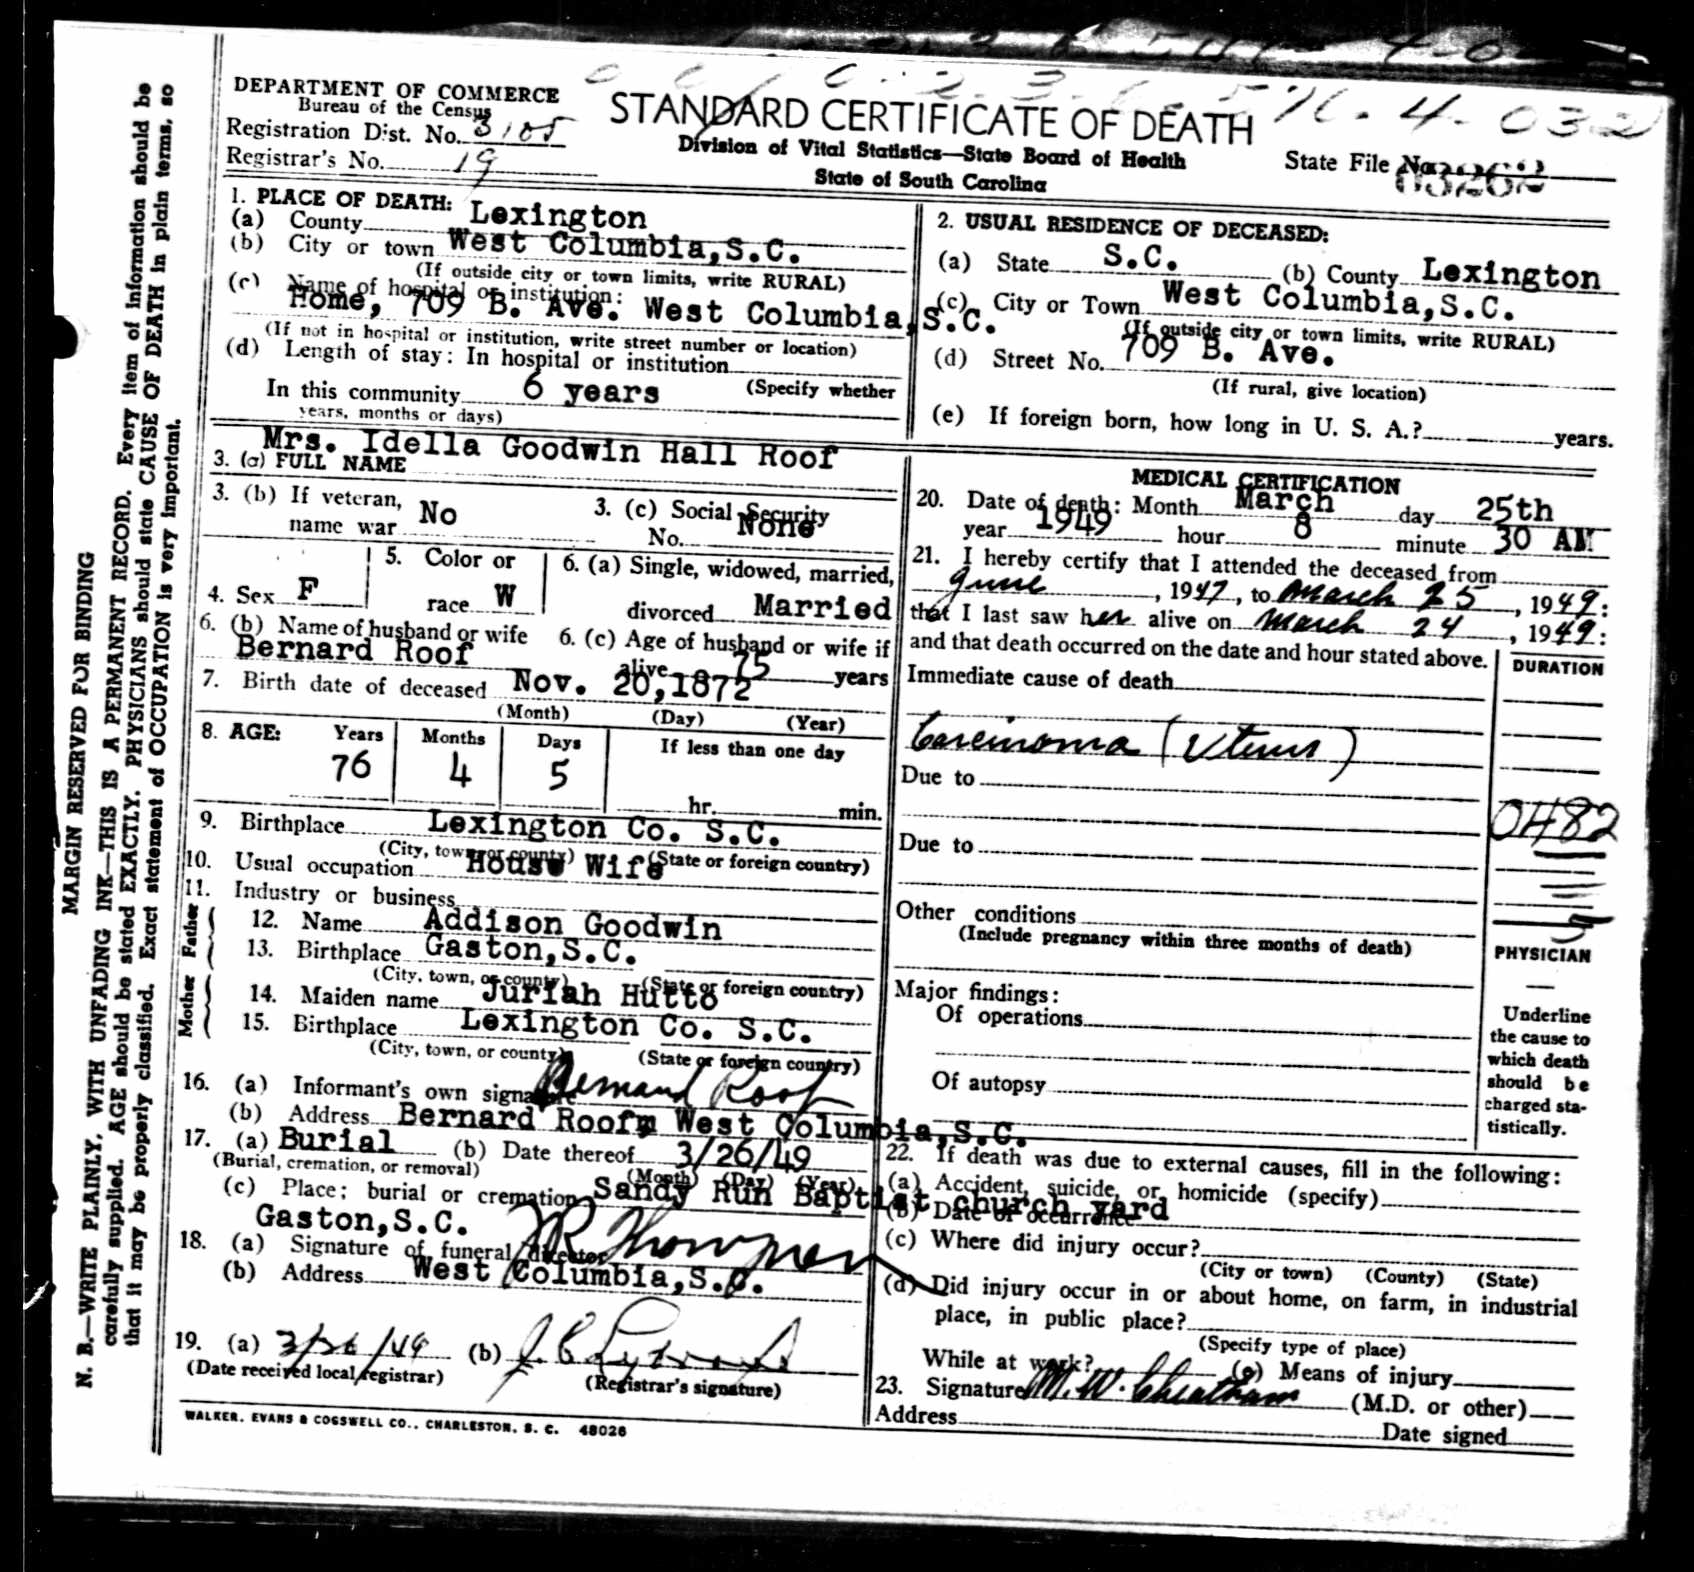 DEPARTMENT OF COMMERCE
Bureau of the Census
Registration Dist. No. 3105
Registrar's No. 19
STANDARD CERTIFICATE OF DEATH
Division of Vital Statistics—State Board of Health
State of South Carolina
State File No.
1. PLACE OF DEATH:
(a) County Lexington
(b) City or town West Columbia,S.C.
(If outside city or town limits, write RURAL)
(c) Name of hospital or institution:
Home, 709 B. Ave. West Columbia,S.C.
(If not in hospital or institution, write street number or location)
(d) Length of stay: In hospital or institution
In this community 6 years (Specify whether
years, months or days)
2. USUAL RESIDENCE OF DECEASED:
(a) State S.C. (b) County Lexington
(c) City or Town West Columbia,S.C.
(If outside city or town limits, write RURAL)
(d) Street No. 709 B. Ave.
(If rural, give location)
(e) If foreign born, how long in U. S. A.? years.
3. (a) FULL NAME Mrs. Idella Goodwin Hall Roof
3. (b) If veteran, name war No
3. (c) Social Security No. None
4. Sex F
5. Color or race W
6. (a) Single, widowed, married, divorced Married
6. (b) Name of husband or wife Bernard Roof
6. (c) Age of husband or wife if alive 75 years
7. Birth date of deceased Nov. 20,1872
(Month) (Day) (Year)
8. AGE: Years Months Days If less than one day
76 4 5 hr. min.
9. Birthplace Lexington Co. S.C.
(City, town, or county) (State or foreign country)
10. Usual occupation House Wife
11. Industry or business
Father
12. Name Addison Goodwin
13. Birthplace Gaston,S.C.
(City, town, or county) (State or foreign country)
Mother
14. Maiden name Juriah Hutto
15. Birthplace Lexington Co. S.C.
(City, town, or county) (State or foreign country)
16. (a) Informant's own signature Bernard Roof
(b) Address Bernard Roof, West Columbia,S.C.
17. (a) Burial (b) Date thereof 3/26/49
(Burial, cremation, or removal) (Month) (Day) (Year)
(c) Place; burial or cremation Sandy Run Baptist church yard
Gaston,S.C.
18. (a) Signature of funeral director
(b) Address West Columbia,S.C.
19. (a) 3/26/49 (b)
(Date received local registrar) (Registrar's signature)
WALKER, EVANS & COGSWELL CO., CHARLESTON, S. C. 48026
MEDICAL CERTIFICATION
20. Date of death: Month March day 25th
year 1949 hour 8 minute 30 AM
21. I hereby certify that I attended the deceased from
June, 1947, to March 25, 1949:
that I last saw her alive on March 24, 1949:
and that death occurred on the date and hour stated above.
DURATION
Immediate cause of death
Carcinoma (Uterus)
Due to
0482
Due to
Other conditions
(Include pregnancy within three months of death)
PHYSICIAN
—
Underline
the cause to
which death
should be
charged sta-
tistically.
Major findings:
Of operations
Of autopsy
22. If death was due to external causes, fill in the following:
(a) Accident, suicide, or homicide (specify)
(b) Date of occurrence
(c) Where did injury occur?
(City or town) (County) (State)
(d) Did injury occur in or about home, on farm, in industrial
place, in public place?
(Specify type of place)
While at work? (e) Means of injury
23. Signature M. W. Cheatham (M.D. or other)
Address Date signed
MARGIN RESERVED FOR BINDING
N. B.—WRITE PLAINLY, WITH UNFADING INK—THIS IS A PERMANENT RECORD. Every item of information should be
carefully supplied. AGE should be stated EXACTLY. PHYSICIANS should state CAUSE OF DEATH in plain terms, so
that it may be properly classified. Exact statement of OCCUPATION is very important.